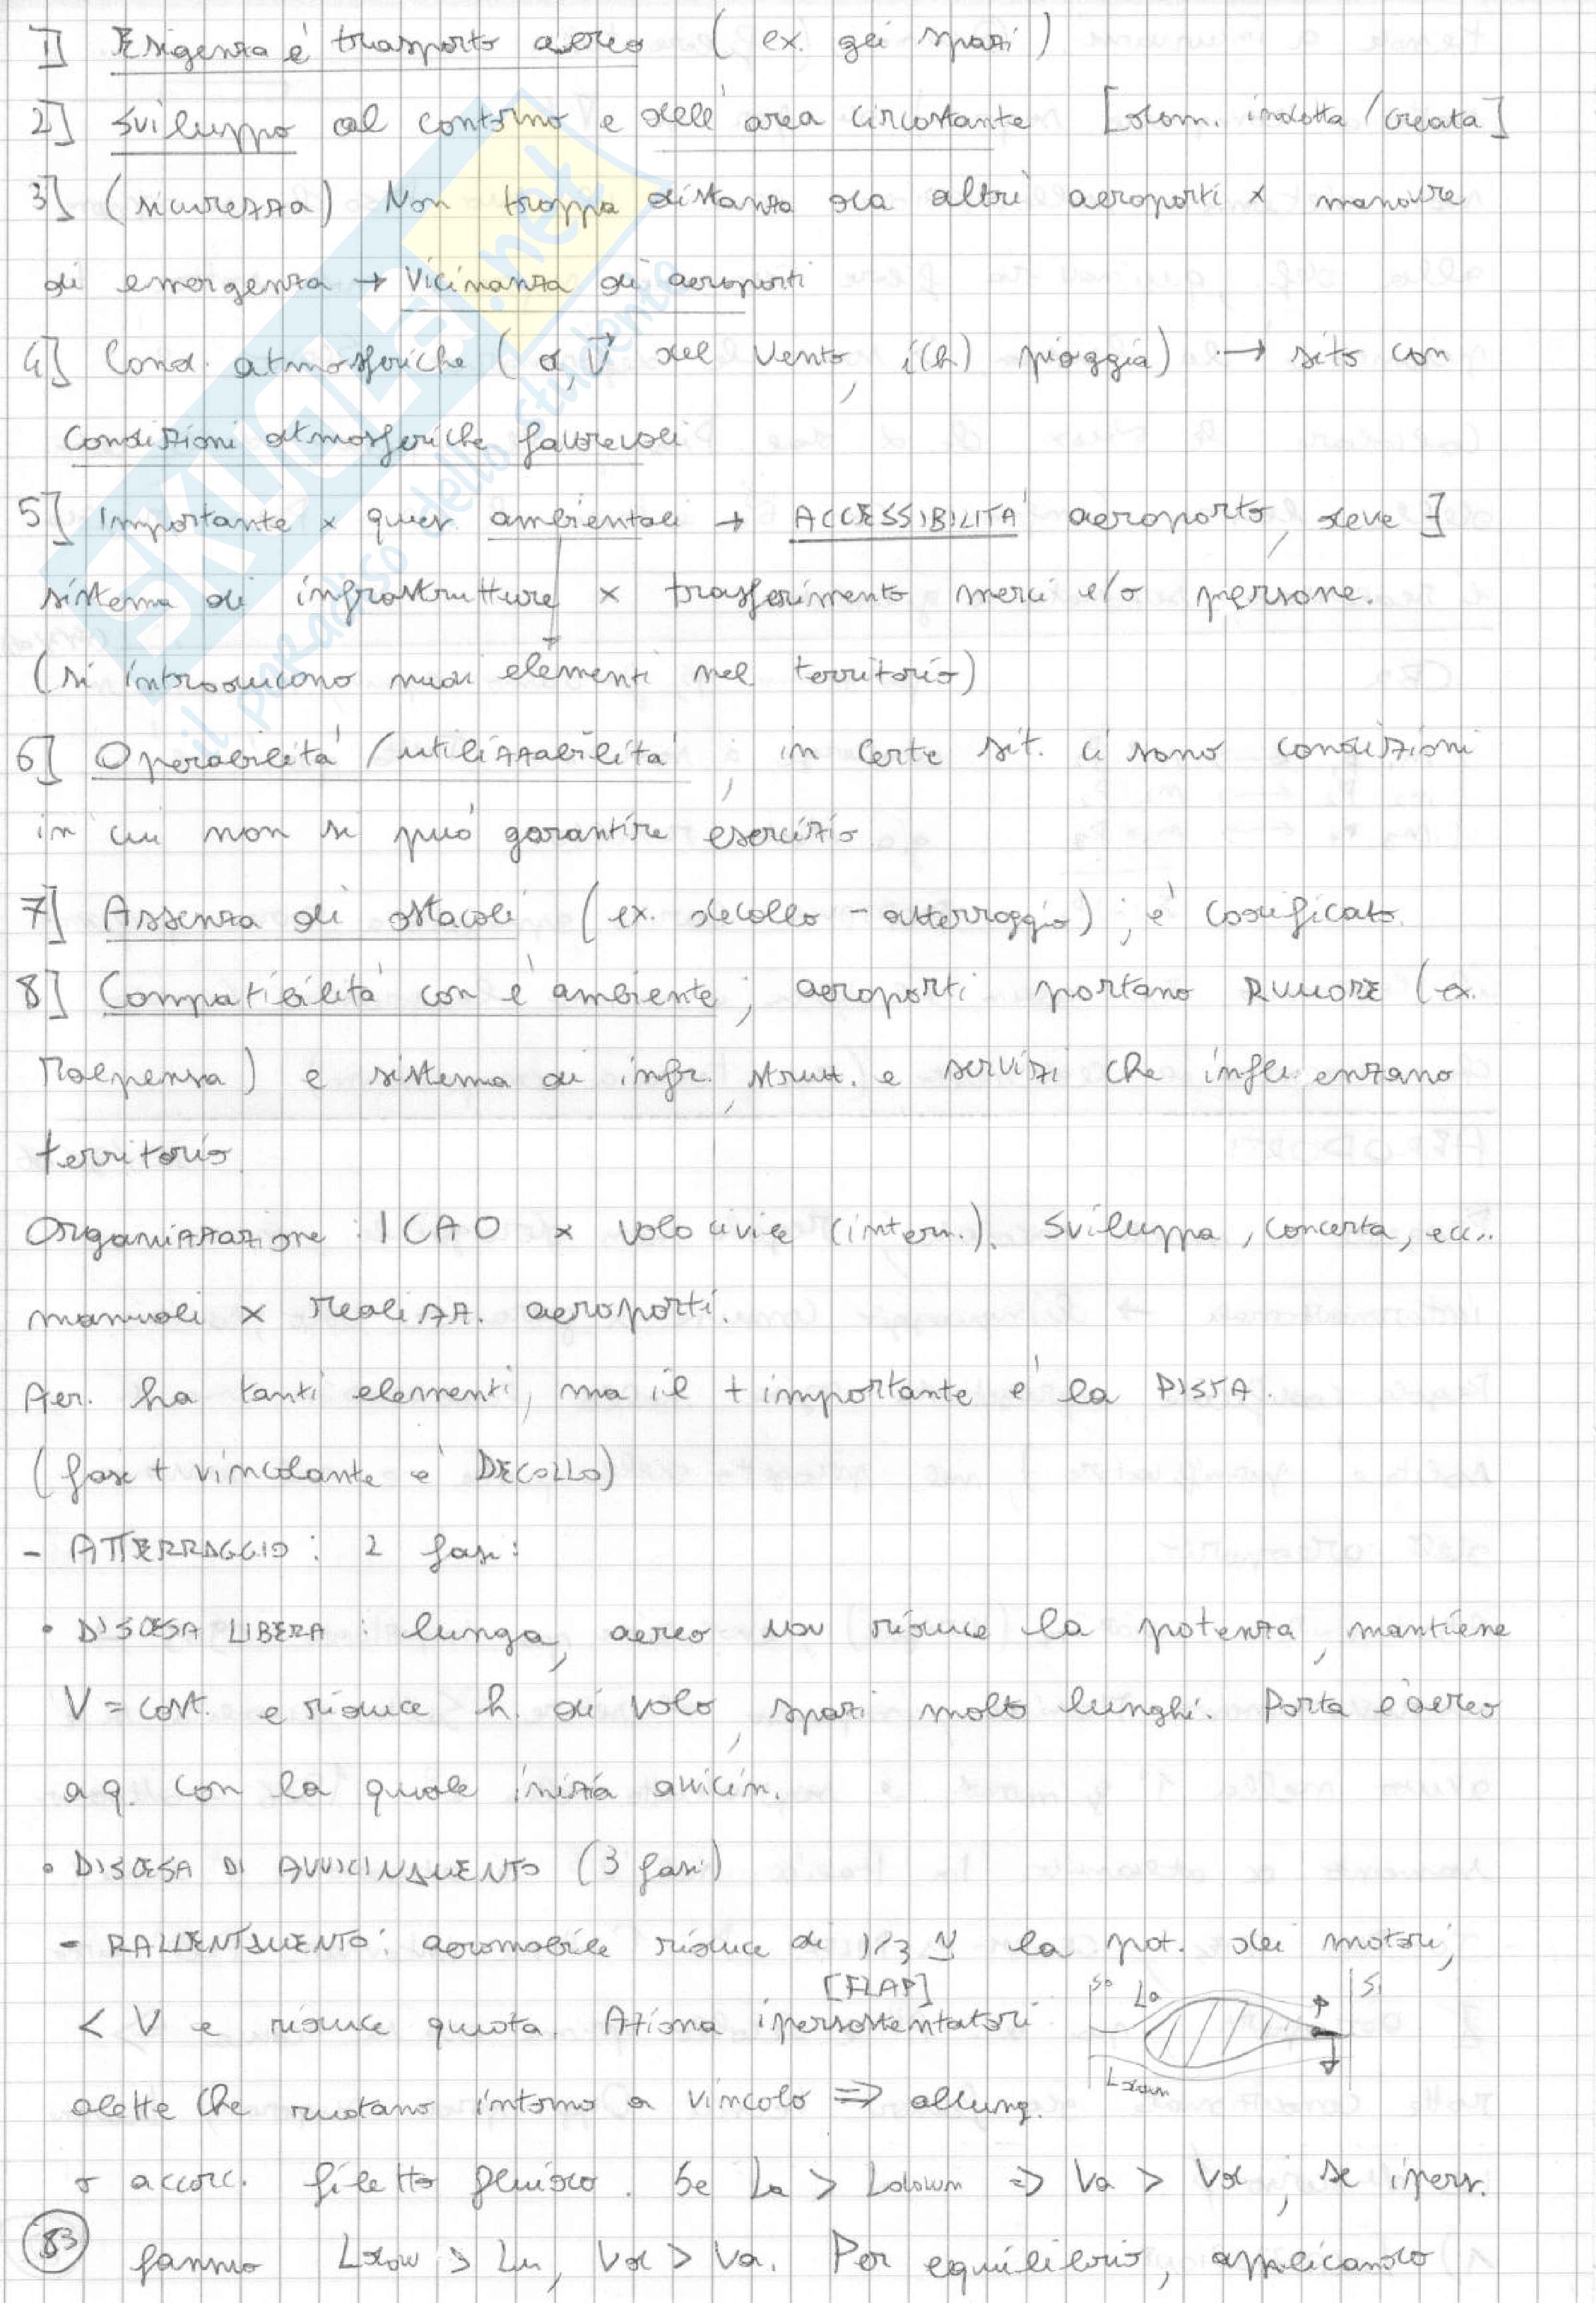 1] Esigenza è trasporto aereo (ex. gli spazi)
2] Sviluppo al contorno e dell'area circostante [dom. indotta/creata]
3] (sicurezza) Non troppa distanza da altri aeroporti x manovre
di emergenza → Vicinanza di aeroporti
4] Cond. atmosferiche (α, V del vento, i(h) pioggia) → sito con
condizioni atmosferiche favorevoli
5] Importante x quest. ambientali → ACCESSIBILITÀ aeroporto, deve ∃
sistema di infrastrutture x trasferimento merci e/o persone.
(si introducono nuovi elementi nel territorio)
6] Operabilità/utilizzabilità; in certe sit. ci sono condizioni
in cui non si può garantire esercizio
7] Assenza di ostacoli (ex. decollo - atterraggio); è codificato.
8] Compatibilità con l'ambiente; aeroporti portano RUMORE (ex.
Malpensa) e sistema di infr., strutt. e servizi che influenzano
territorio.
Organizzazione: ICAO x volo civile (intern.). Sviluppa, concerta, ecc..
manuali x realizz. aeroporti.
Aer. ha tanti elementi, ma il + importante è la PISTA.
(fase + vincolante è DECOLLO)
- ATTERRAGGIO: 2 fasi:
• DISCESA LIBERA: lunga, aereo non riduce la potenza, mantiene
V = cost. e riduce h. di volo, spazi molto lunghi. Porta l'aereo
a q. con la quale inizia avvicin.
• DISCESA DI AVVICINAMENTO (3 fasi)
- RALLENTAMENTO: aeromobile riduce di 1/3 N la pot. dei motori,
[FLAP]
< V e riduce quota. Aziona ipersostentatori
S0 La S1
Ldown
alette che ruotano intorno a vincolo ⇒ allung.
o accorc. filetto fluido. Se La > Ldown ⇒ Va > Vd; se ipers.
83 fanno Ldow > Lu, Vd > Va. Per equilibrio, applicando
SKUOLA.net
il paradiso dello studente